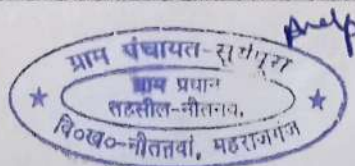 ग्राम पंचायत-सूर्यपुरा
ग्राम प्रधान
तहसील-नौतनवा,
वि०ख०-नौतनवां, महराजगंज